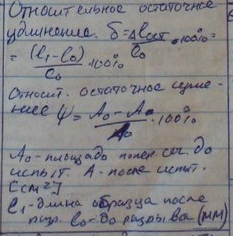 Относительное остаточное
удлинение. δ = Δlост/l₀ · 100% =
= (l₁ - l₀)/l₀ · 100%
Относит. остаточное
ψ = A₀ - A/A₀ · 100%
A₀ - площадь попер сеч. до
испыт. A - после испыт.
[см²]
l₁ - длина образца после
l₀ - до разрыва (мм)